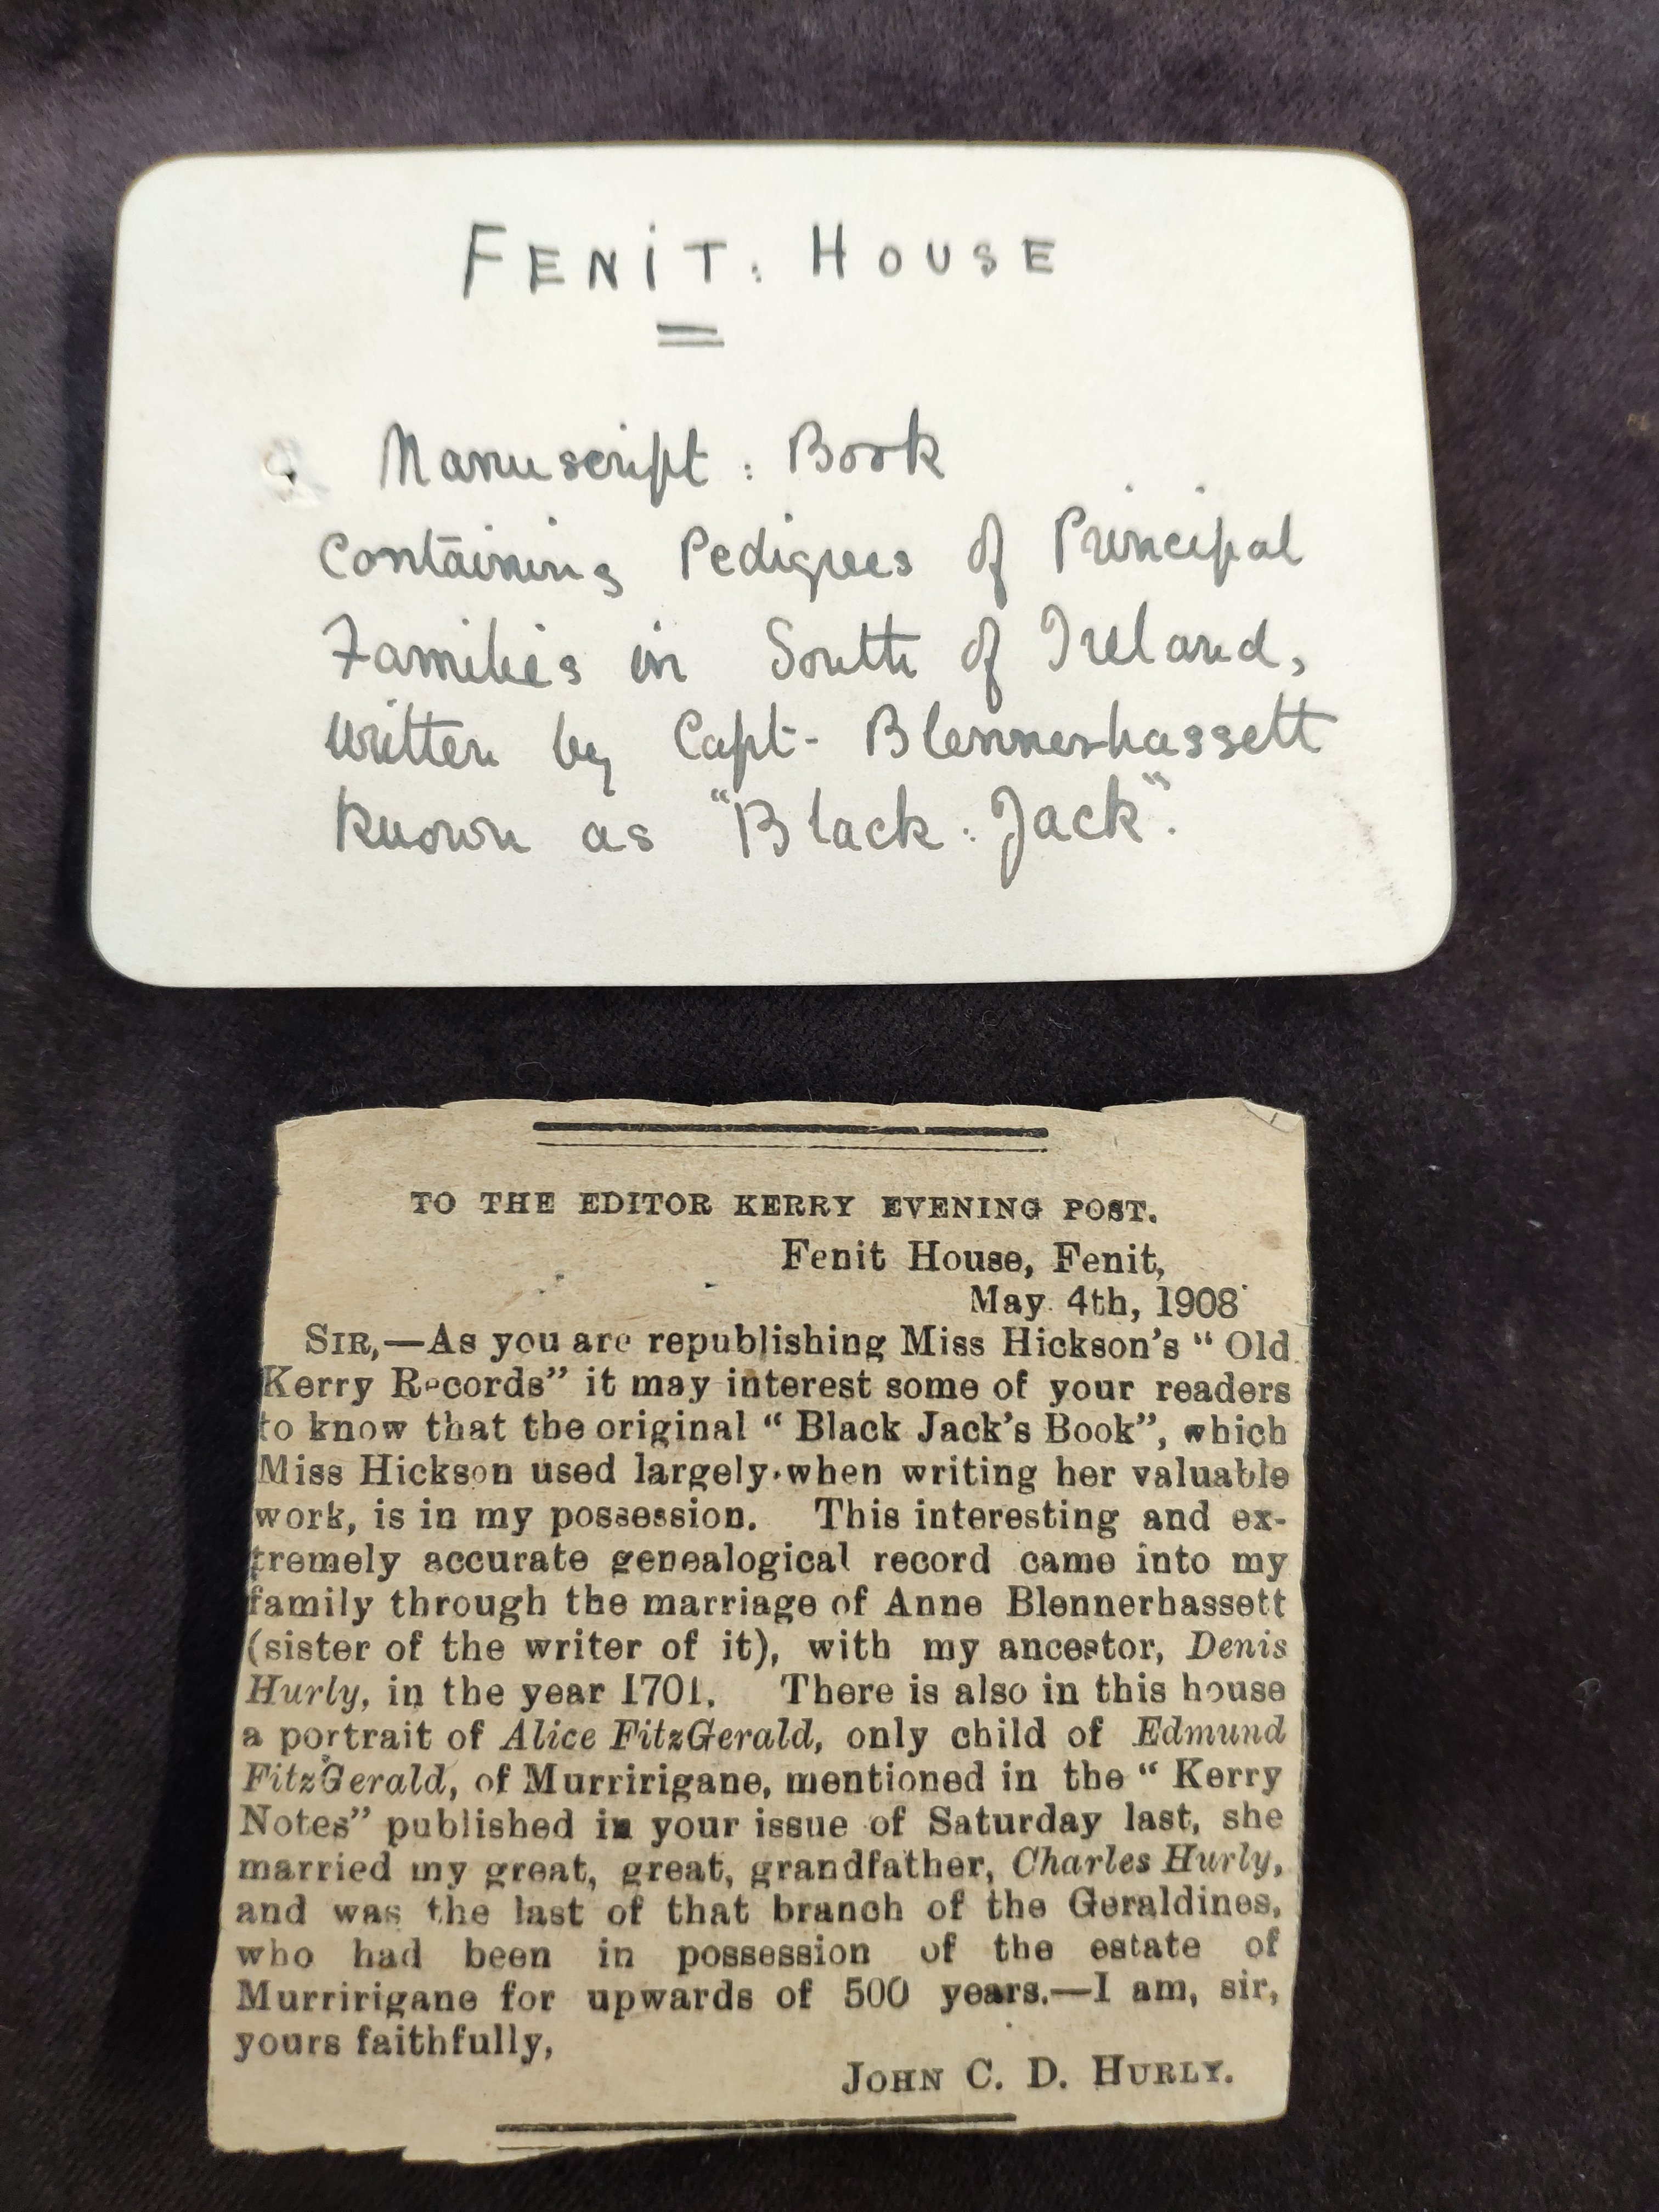 FENiT : HOUSE
Manuscript : Book
Containing Pedigrees of Principal
Families in South of Ireland,
written by Capt- Blennerhassett
known as "Black : Jack".
TO THE EDITOR KERRY EVENING POST.
Fenit House, Fenit,
May 4th, 1908
SIR,—As you are republishing Miss Hickson's "Old
Kerry Records" it may interest some of your readers
to know that the original "Black Jack's Book", which
Miss Hickson used largely when writing her valuable
work, is in my possession. This interesting and ex-
tremely accurate genealogical record came into my
family through the marriage of Anne Blennerhassett
(sister of the writer of it), with my ancestor, Denis
Hurly, in the year 1701. There is also in this house
a portrait of Alice FitzGerald, only child of Edmund
FitzGerald, of Murririgane, mentioned in the "Kerry
Notes" published in your issue of Saturday last, she
married my great, great, grandfather, Charles Hurly,
and was the last of that branch of the Geraldines,
who had been in possession of the estate of
Murririgane for upwards of 500 years.—I am, sir,
yours faithfully,
JOHN C. D. HURLY.